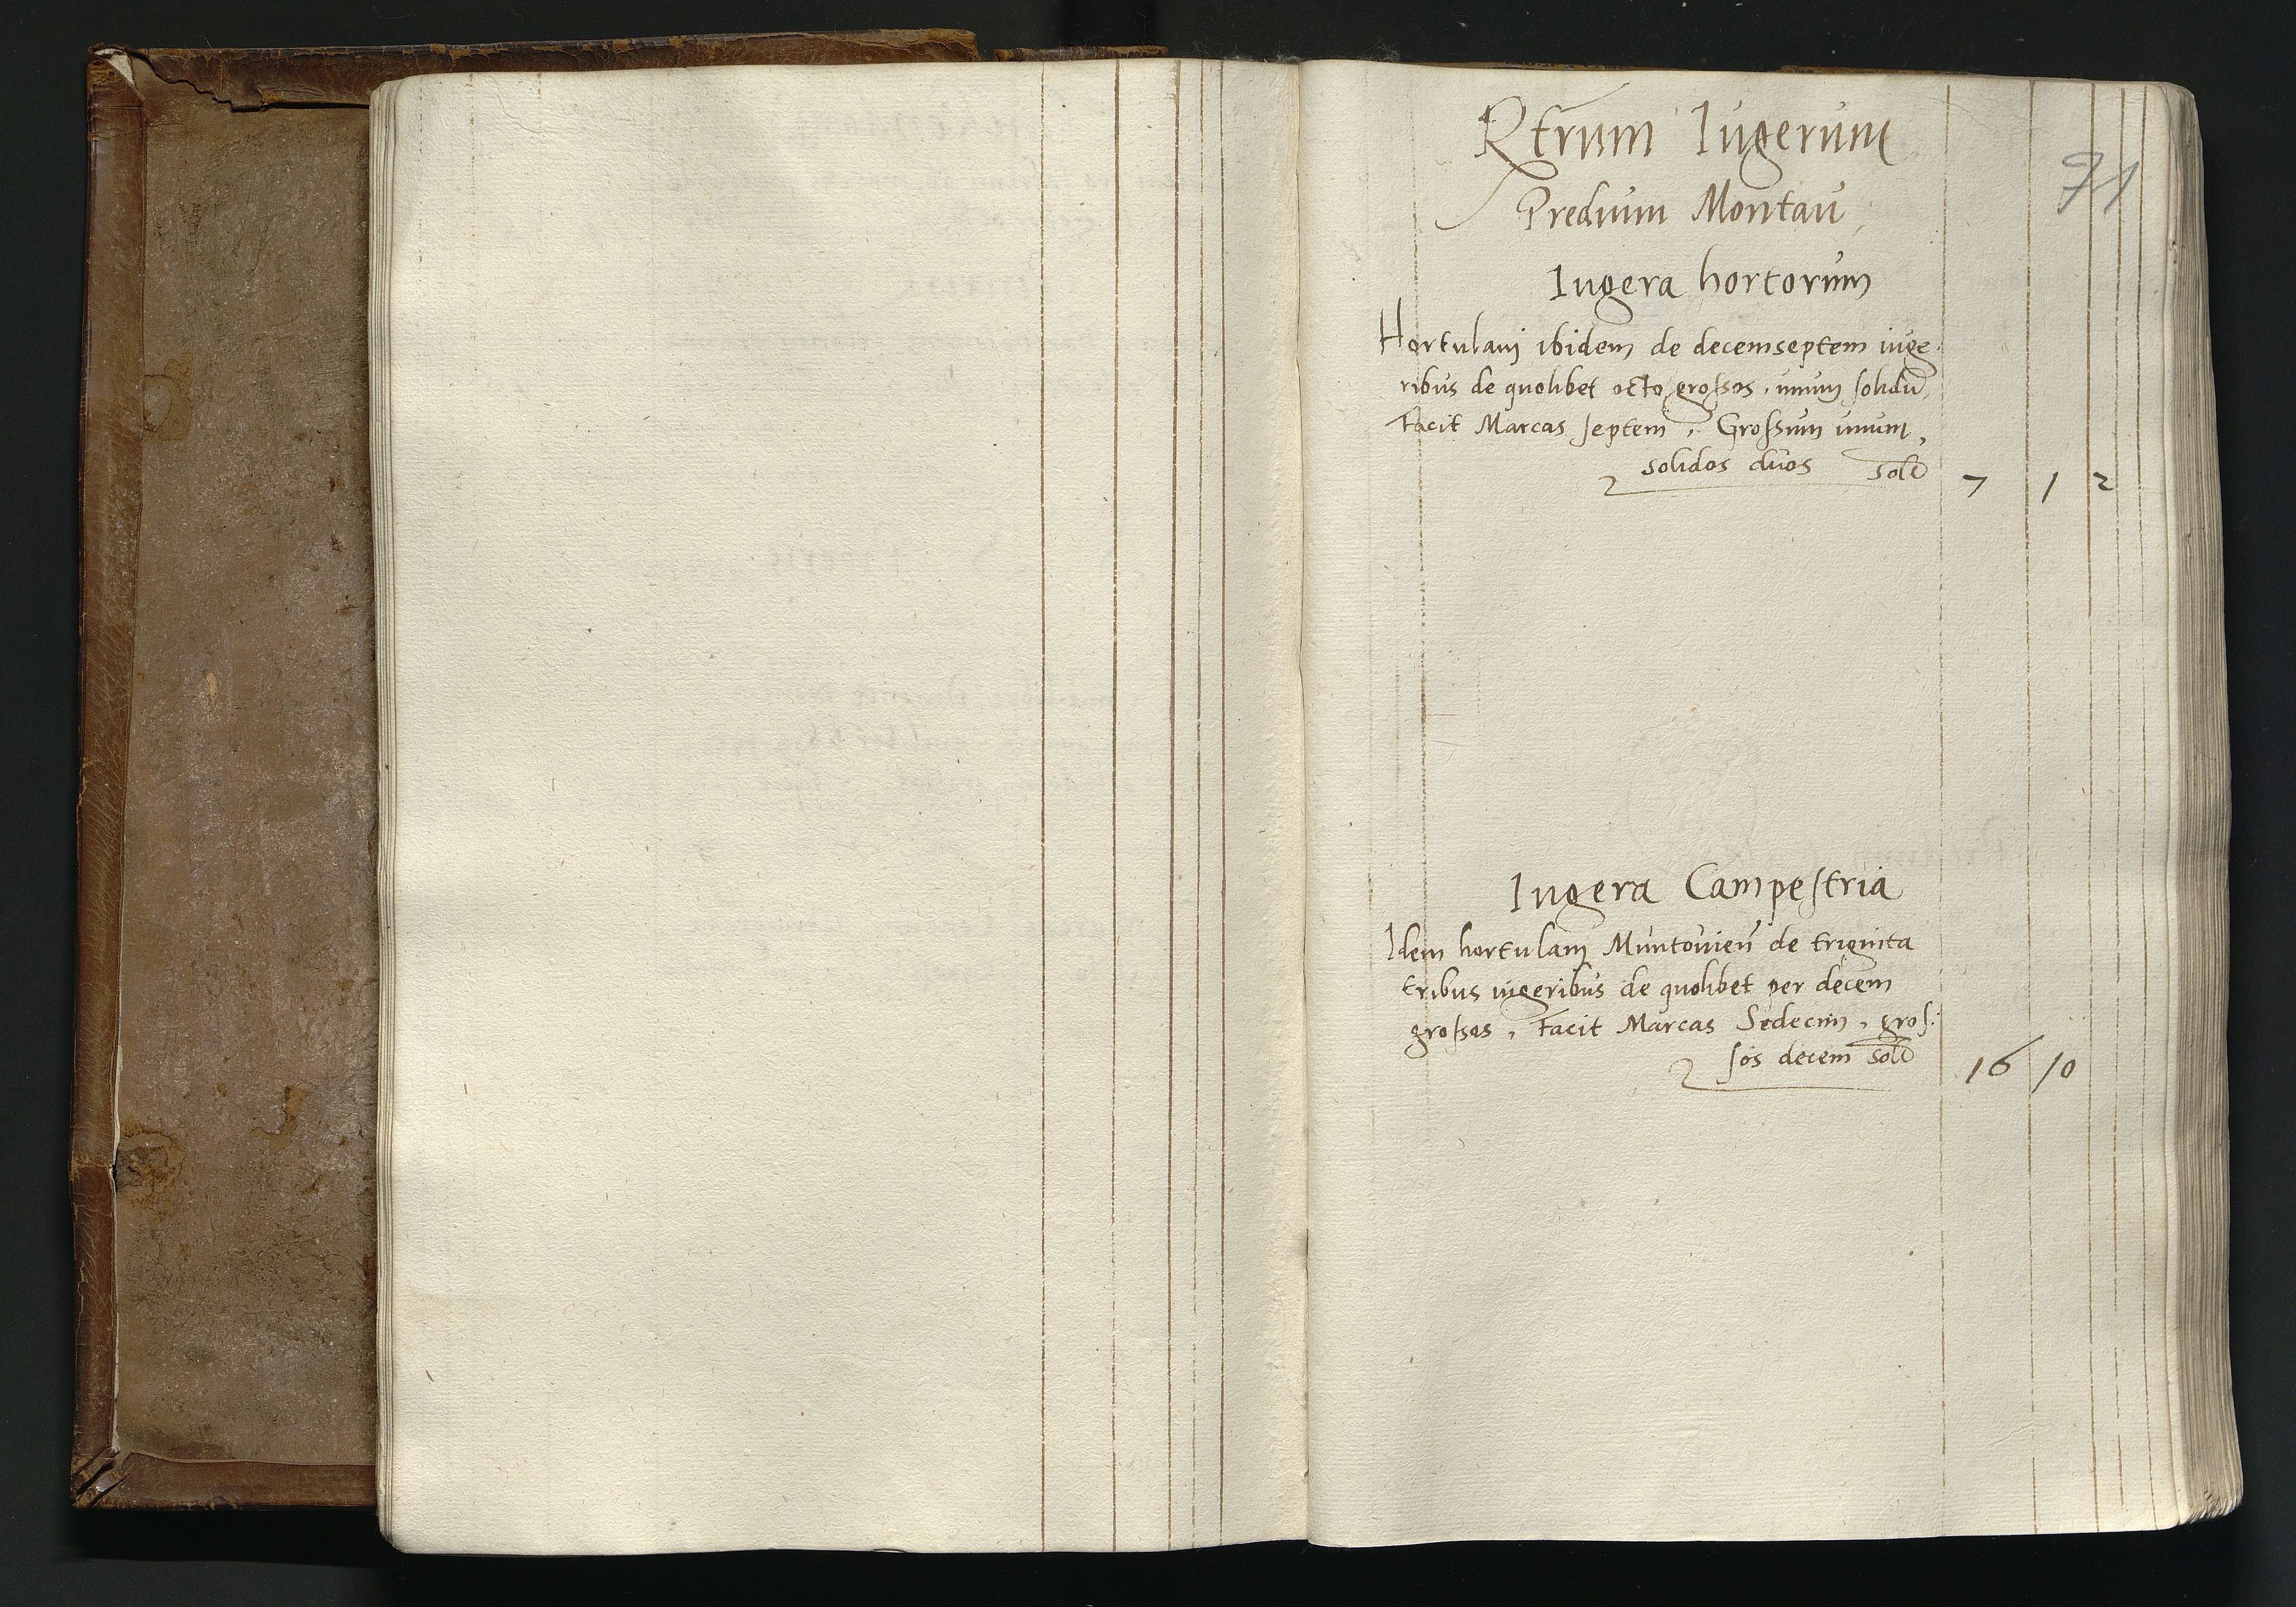 Rtrum Iugerum
71
Predium Montau
Iugera hortorum
Hortulanj ibidem de decemseptem iuge
ribus de quolibet octo grossos, unum solidu
Facit Marcas septem, Grossum unum,
solidos duos sol 7 1 2
Iugera Campestria
Idem hortulanj Muntouien de triginta
tribus iugeribus de quolibet per decem
grossos, Facit Marcas Sedecim, gros:
sos decem sol 16 10